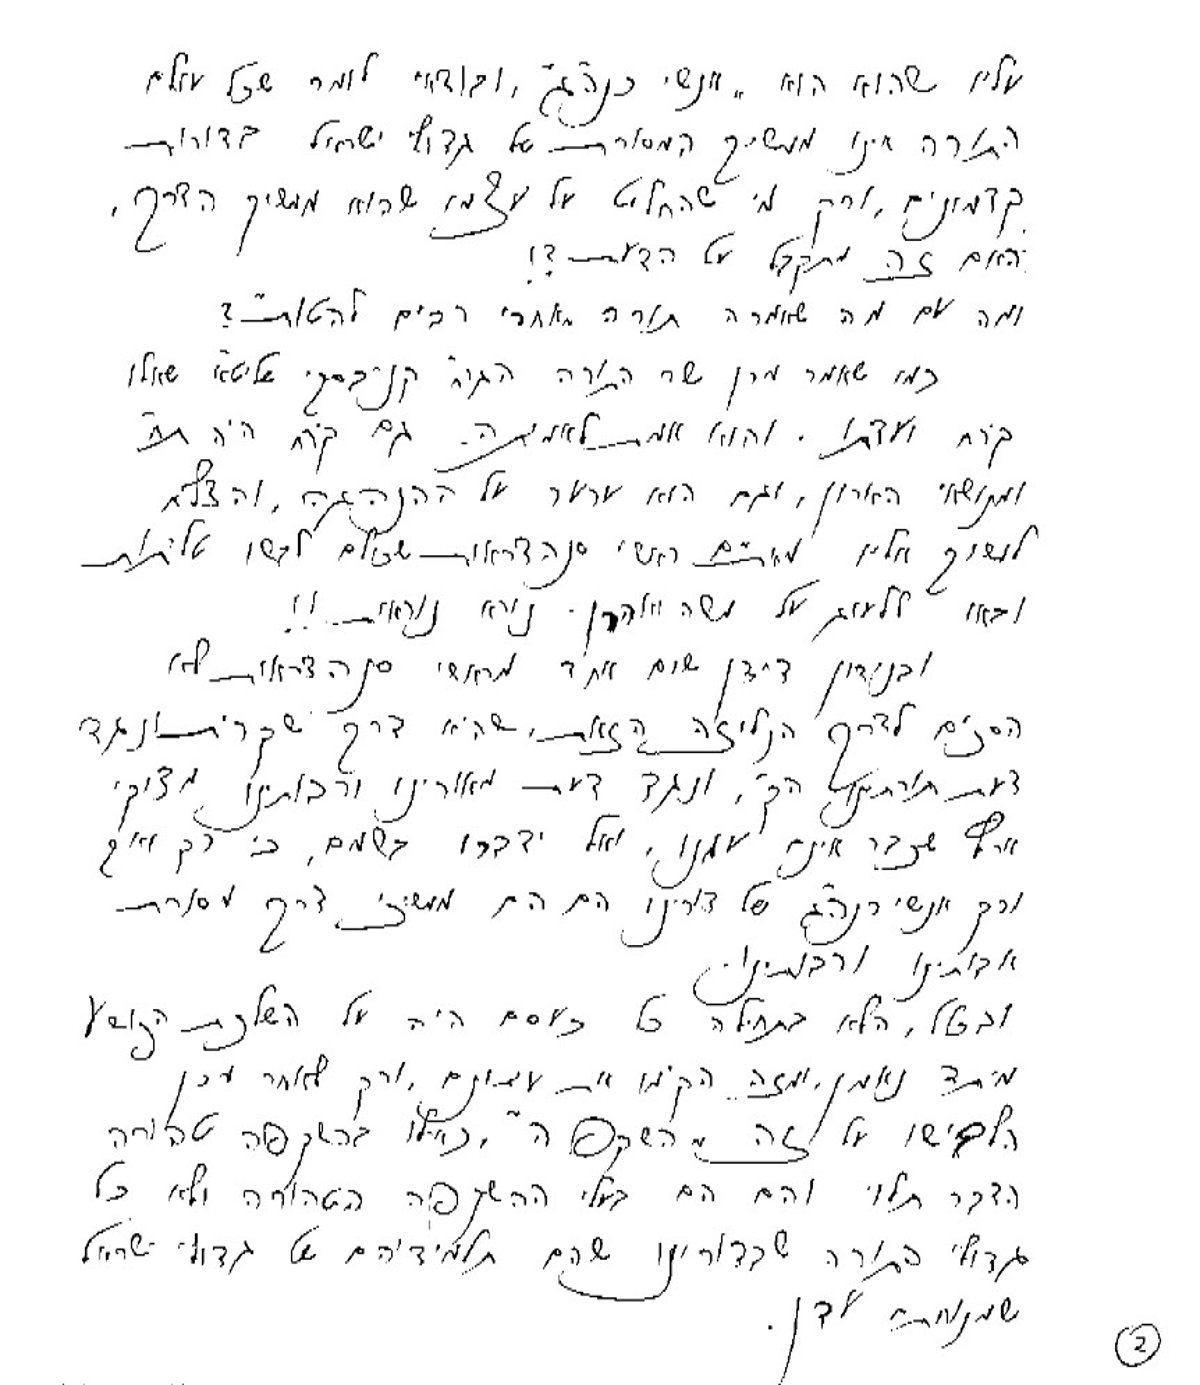 עליו שהוא הוא "אנשי כנה"ג", ובודאי לומר שכל עולם
התורה אינו ממשיך המסורת של גדולי ישראל בדורות
קדמונים, ורק מי שהחליט על עצמו שהוא ממשיך הדרך,
האם זה מתקבל על הדעת?!
ומה עם מה שאמרה תורה "אחרי רבים להטות"?
כמו שאמר מרן שר התורה הגר"ח קנייבסקי שליט"א שאלו
קרח ועדתו. והוא אמת לאמיתה. גם קרח היה ת"ח
ומנושאי הארון, וגם הוא ערער על ההנהגה, והצליח
למשוך אליו מאתיים ראשי סנהדראות שכולם לבשו טליתות
ובאו ללעוג על משה ואהרן. נורא נוראות!!
ובנידון דידן שום אחד מראשי סנהדראות לא
הסכים לדרך הנלוזה הזאת, שהיא דרך שקרית ונגד
דעת תורתינו הק', ונגד דעת מאורינו ורבותינו מצוקי
ארץ שכבר אינם עמנו, ואל ידברו בשמם, כי רק ואך
ורק אנשי כנה"ג של דורינו הם הם ממשיכי דרך מסורת
אבותינו ורבותינו.
ובכלל, הלא בתחילה כל כעסם היה על השלכת הנושע
מיתד נאמן, ומזה הקימו את עיתונם, ורק לאחר מכן
הלבישו על זה "השקפה", כאילו בהשקפה טהורה
הדבר תלוי והם הם בעלי ההשקפה הטהורה ולא כל
גדולי התורה שבדורינו שהם תלמידיהם של גדולי ישראל
שמנוחתם עדן.
2